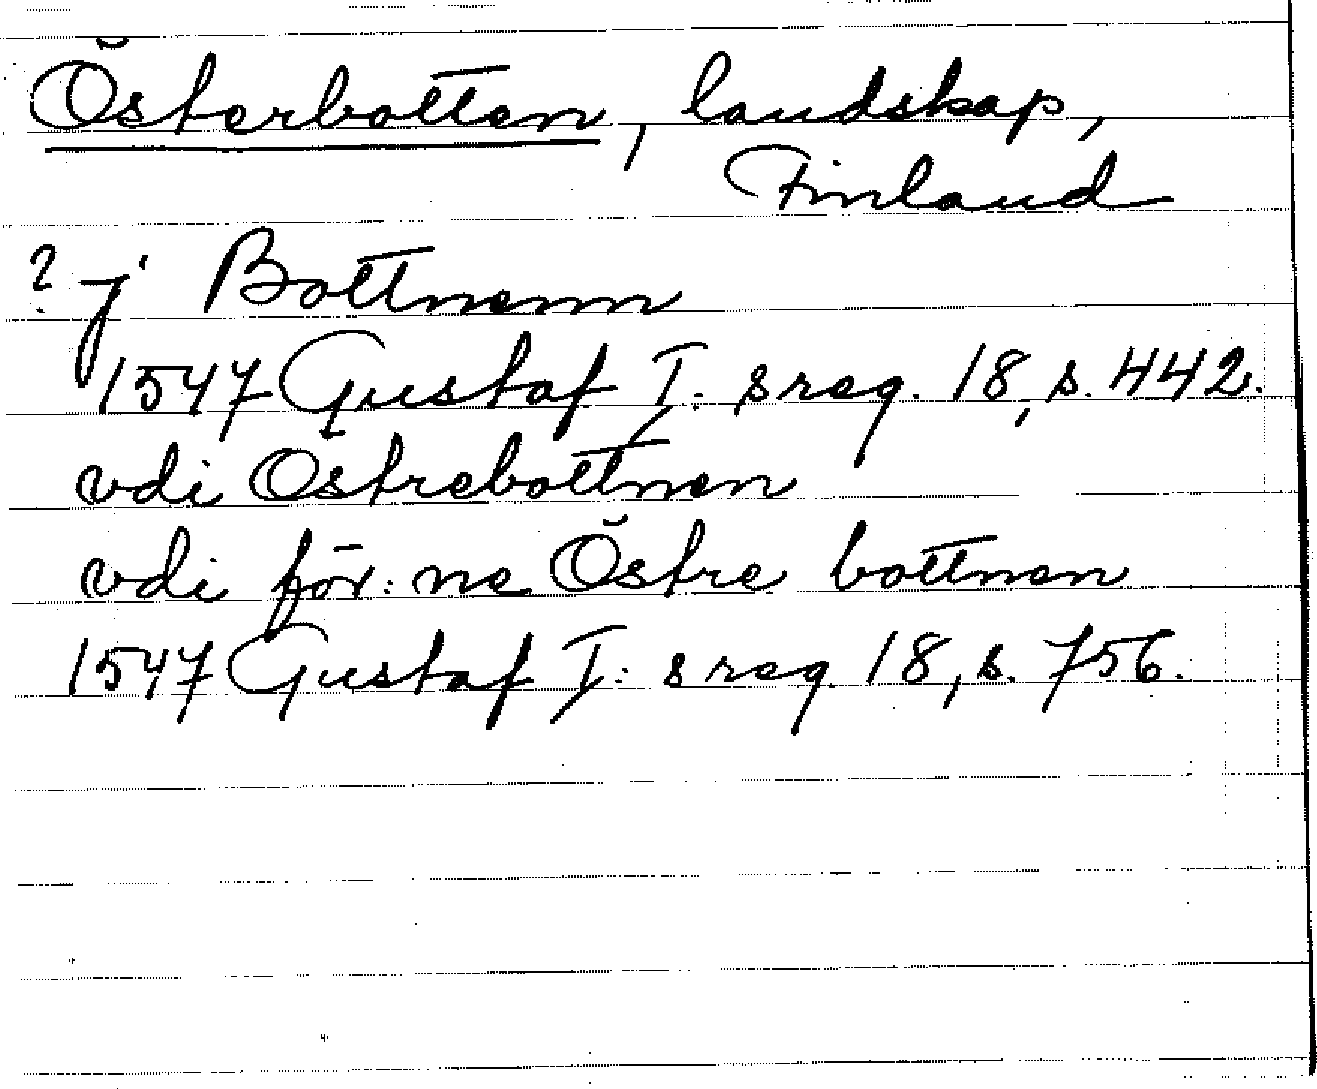 Österbotten, landskap,
Finland
? j Bottnenn
1547 Gustaf I:s reg. 18, s. 442.
vdi Ostrebottnen
vdi för:ne Östre bottnen
1547 Gustaf I:s reg 18, s. 756.